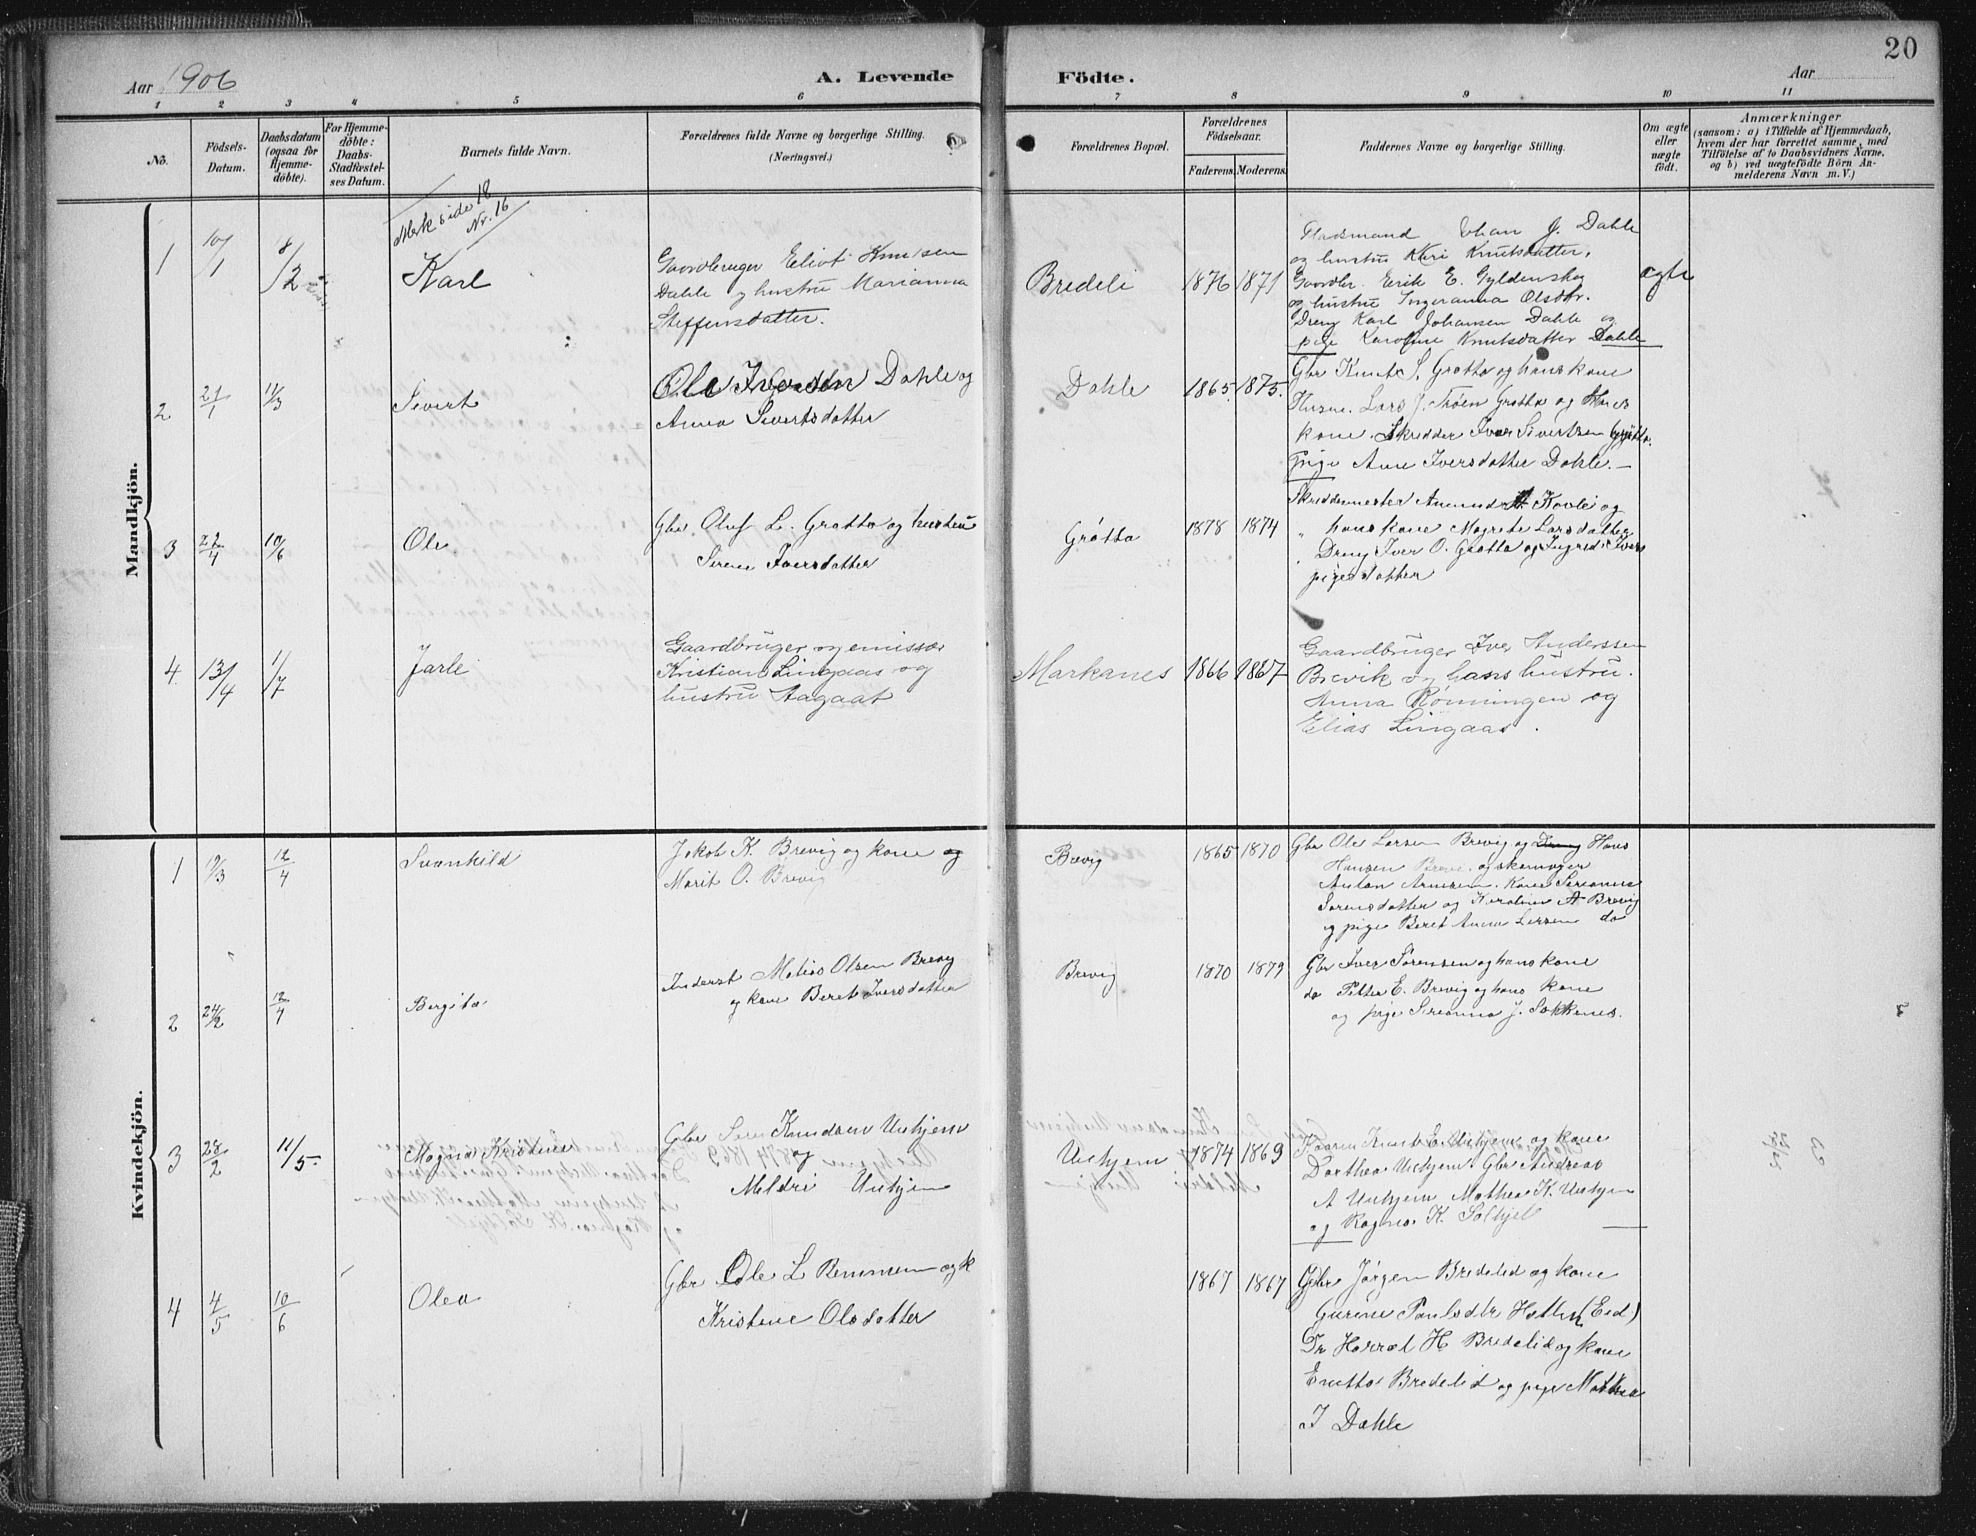 20
Aar 1906
A. Levende
Födte.
Aar
1 2 3 4 5 6 7 8 9 10 11
No.
Födsels-
Datum.
Daabsdatum
(ogsaa for
Hjemme-
döbte).
For Hjemme-
döbte:
Daabs-
Stadfæstel-
ses Datum.
Barnets fulde Navn.
Forældrenes fulde Navne og borgerlige Stilling.
(Næringsvei.)
Forældrenes Bopæl.
Forældrenes
Födselsaar.
Faderens. Moderens.
Faddernes Navne og borgerlige Stilling.
Om ægte
eller
uægte
födt.
Anmærkninger
(saasom: a) i Tilfælde af Hjemmedaab,
hvem der har forrettet samme, med
Tilföielse af to Daabsvidners Navne,
og b) ved uægtefödte Börn An-
melderens Navn m. V.)
Mandkjön.
Merk side 18
Nr. 16
1 10/1 18/2 Karl
Gaardbruger Eliot Knutsen
Dahle og hustru Marianna
Steffensdatter.
Bredeli 1876 1871
Johan J. Dahle
og hustru Kari Knutsdatter.
Gaardbr. Erik E. Gyldenskog
og hustru Ingeranna Olsdtr.
Dreng Karl Johansen Dahle og
pige Karoline Knutsdatter Dahle
ægte
2 21/1 11/3 Sivert
Ole Iversen Dahle og
Anna Sivertsdatter
Dahle 1865. 1875.
Gbr Knut S. Grøtta og hans kone
Husm. Lars J. Trøen Grøtta og Hans
kone. Skredder Iver Sivertsen Grøtta.
Pige Ane Iversdatter Dahle.
3 22/4 10/6 Ole
Gbr Oluf L. Grøtta og hustru
Serene Iversdatter
Grøtta 1878 1874
Skreddermester Amund A. Kavli og
" hans kone Magrete Larsdatter
Dreng Iver O. Grøtta og Ingrid Ivers
pige datter
4. 13/4 1/7 Jarle
Gaardbruger og emissær
Kristian Lingaas og
hustru Aagaat
Markanes 1866 1867
Gaardbruger Iver Anderssen
Brevik og hans hustru.
Anna Rønningen og
Elias Lingaas.
Kvindekjön.
1 19/3 12/4 Svanhild
Jakob K. Brevig og kone og
Marit O. Brevig
Brevig 1865 1870
Gbr Ole Larsen Brevig og Dreng Hans
Hansen Brevi. og skomager
Anton Arnesen. Kone Serianna
Sørensdatter og Karoline A Brevig
og pige Beret Anna Larsen do
2 24/2 12/4 Bergita
Inderst Matias Olsen Brevig
og kone Beret Iversdatter
Brevig 1870 1879
Gbr Iver Sørensen og hans kone
do Petter E. Brevig og hans kone
og pige Serianna J. Sakkenes.
3 28/2 11/5. Magna Kristine
Gbr Sern Knudsen Uuhjem
og
Meldri Uuhjem
Uuhjem 1874 1869
Kaarm Knut E. Uuhjem og kone
Darthea Uuhjem Gbr Andreas
A Uuhjem Mathea K. Uuhjem
og Ragna K. Solhjel
4 4/5 10/6 Olea
Gbr Ole L Remmem og k
Kristine Olsdatter
1867 1867
Gbr Jørgen Bredelid og kone
Gurine Paulsdtr Hatlen (Eid)
Do Harral H Bredelid og kone
Enitta Bredelid og pige Mathea
J Dahle